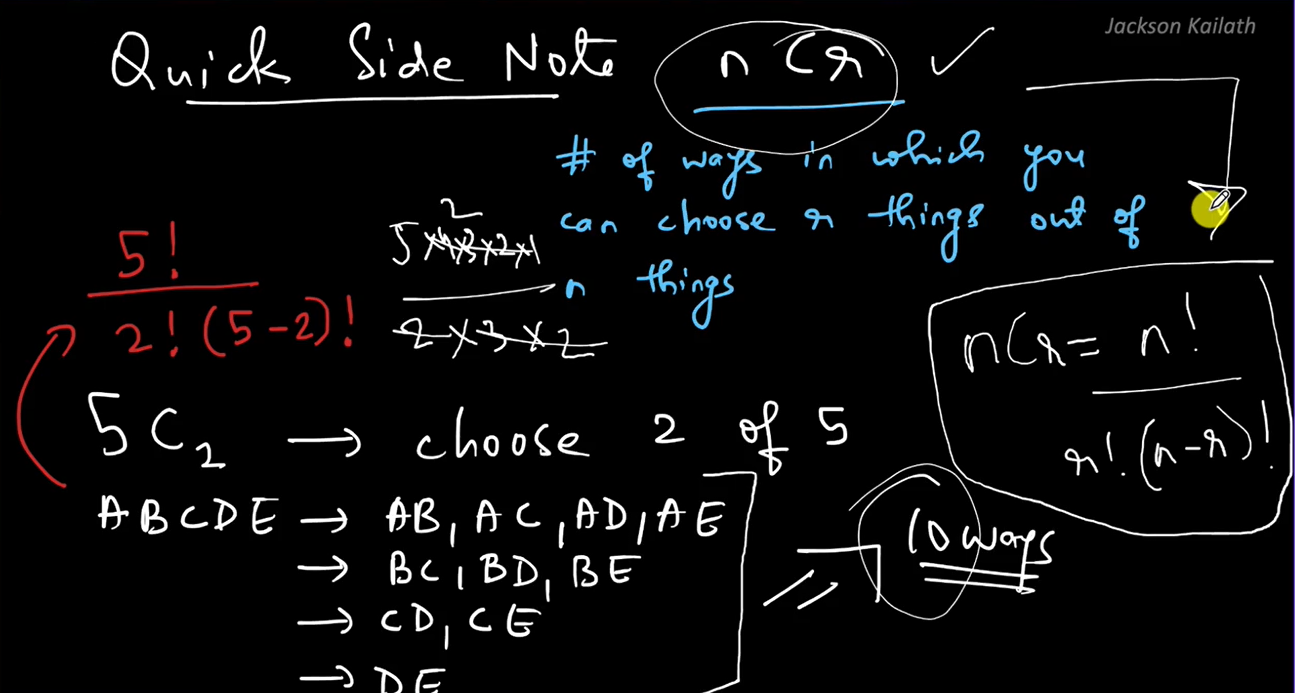 Jackson Kailath
Quick Side Note nCr ✓
# of ways in which you
can choose r things out of
n things
5!
2!(5-2)!
2
5×4×3×2×1
2×3×2
nCr = n!
r!(n-r)!
5C₂ → choose 2 of 5
ABCDE → AB, AC, AD, AE
→ BC, BD, BE
→ CD, CE
→ DE
10 ways